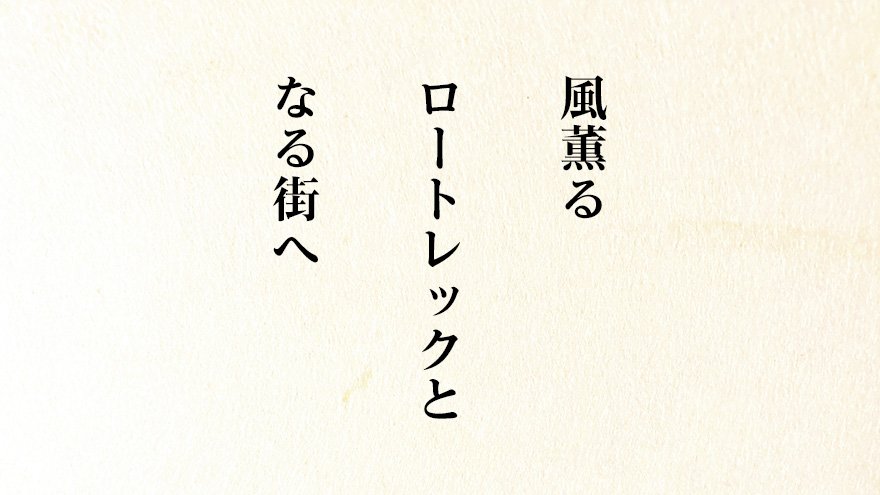 風薫る
ロートレックと
なる街へ